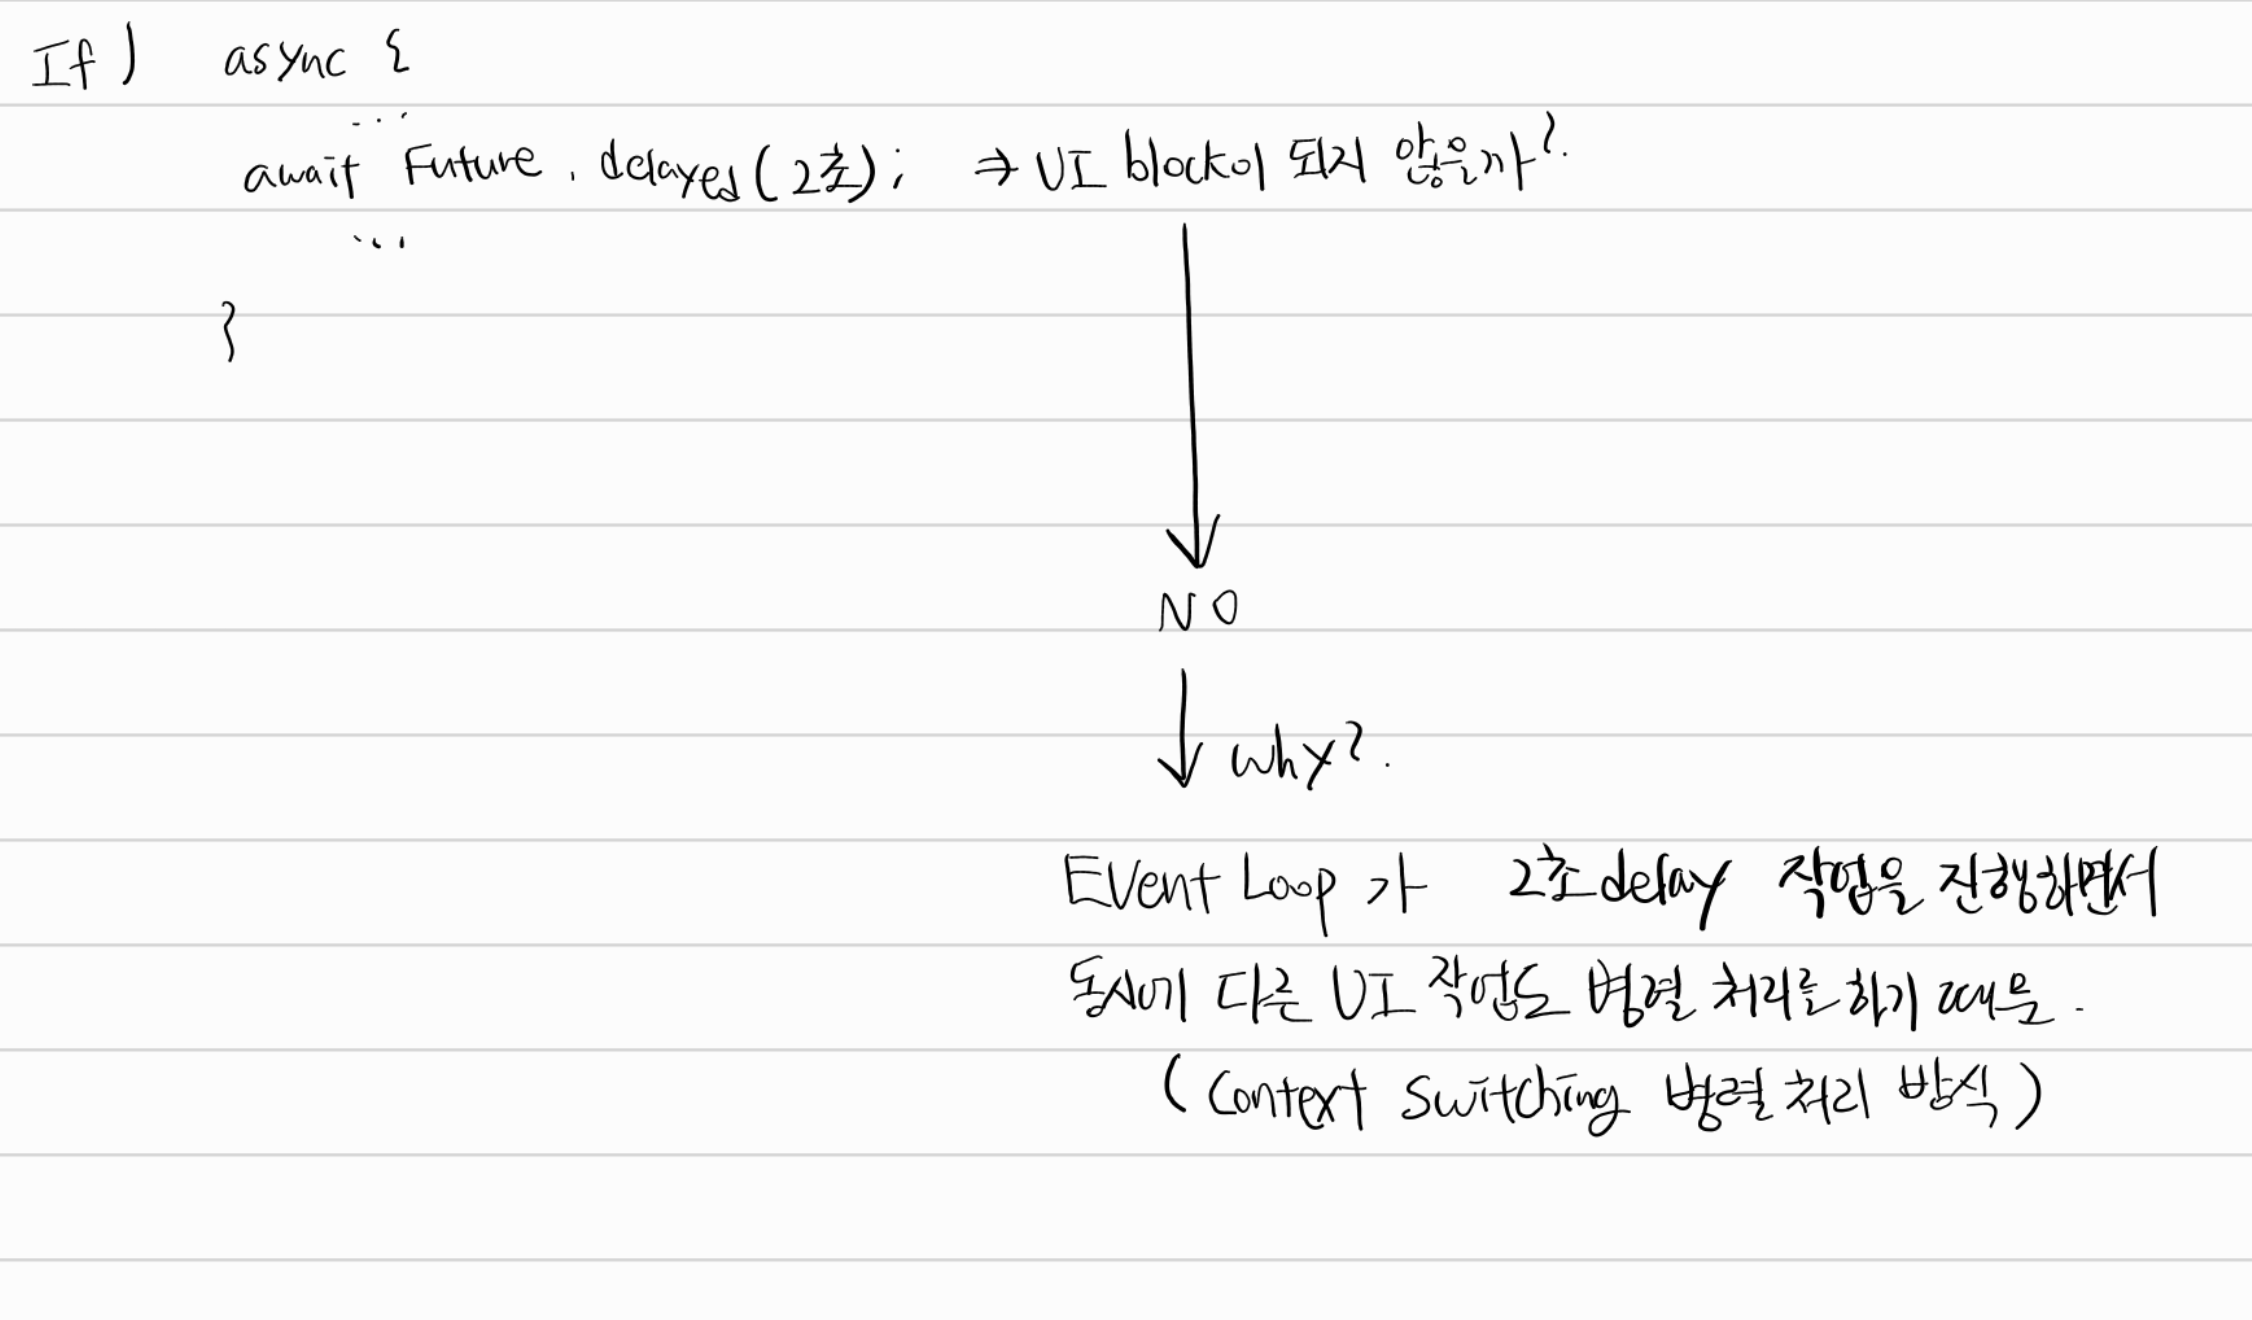 If) async {
...
await Future. delayed(2초); ⇒ UI block이 되지 않을까?.
...
}
NO
why?.
Event Loop 가 2초 delay 작업을 진행하면서
동시에 다른 UI 작업도 병렬 처리를 하기 때문.
(Context Switching 병렬 처리 방식)